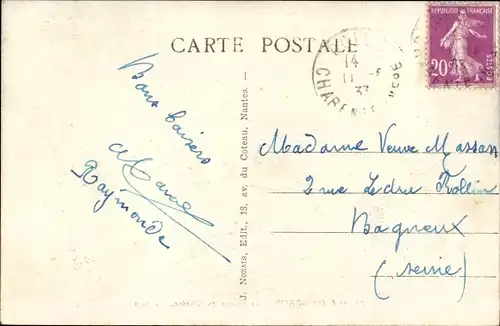 CARTE POSTALE
REPUBLIQUE FRANÇAISE
20c
POSTES
14
11 -5
33
CHARENTE
Bons baisers
Raymonde
J. Nozais, Edit., 13, av. du Coteau, Nantes. -
Madame Veuve Massan
2 rue Ledru Rollin
Bagneux
(Seine)